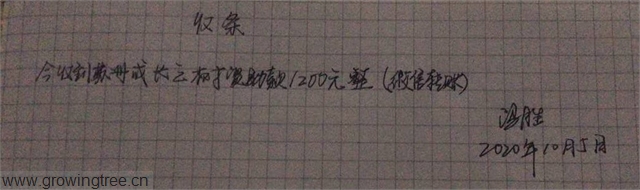 收条
今收到苏州成长之树资助款1200元整（微信转账）
冯胜
2020年10月5日
www.growingtree.cn